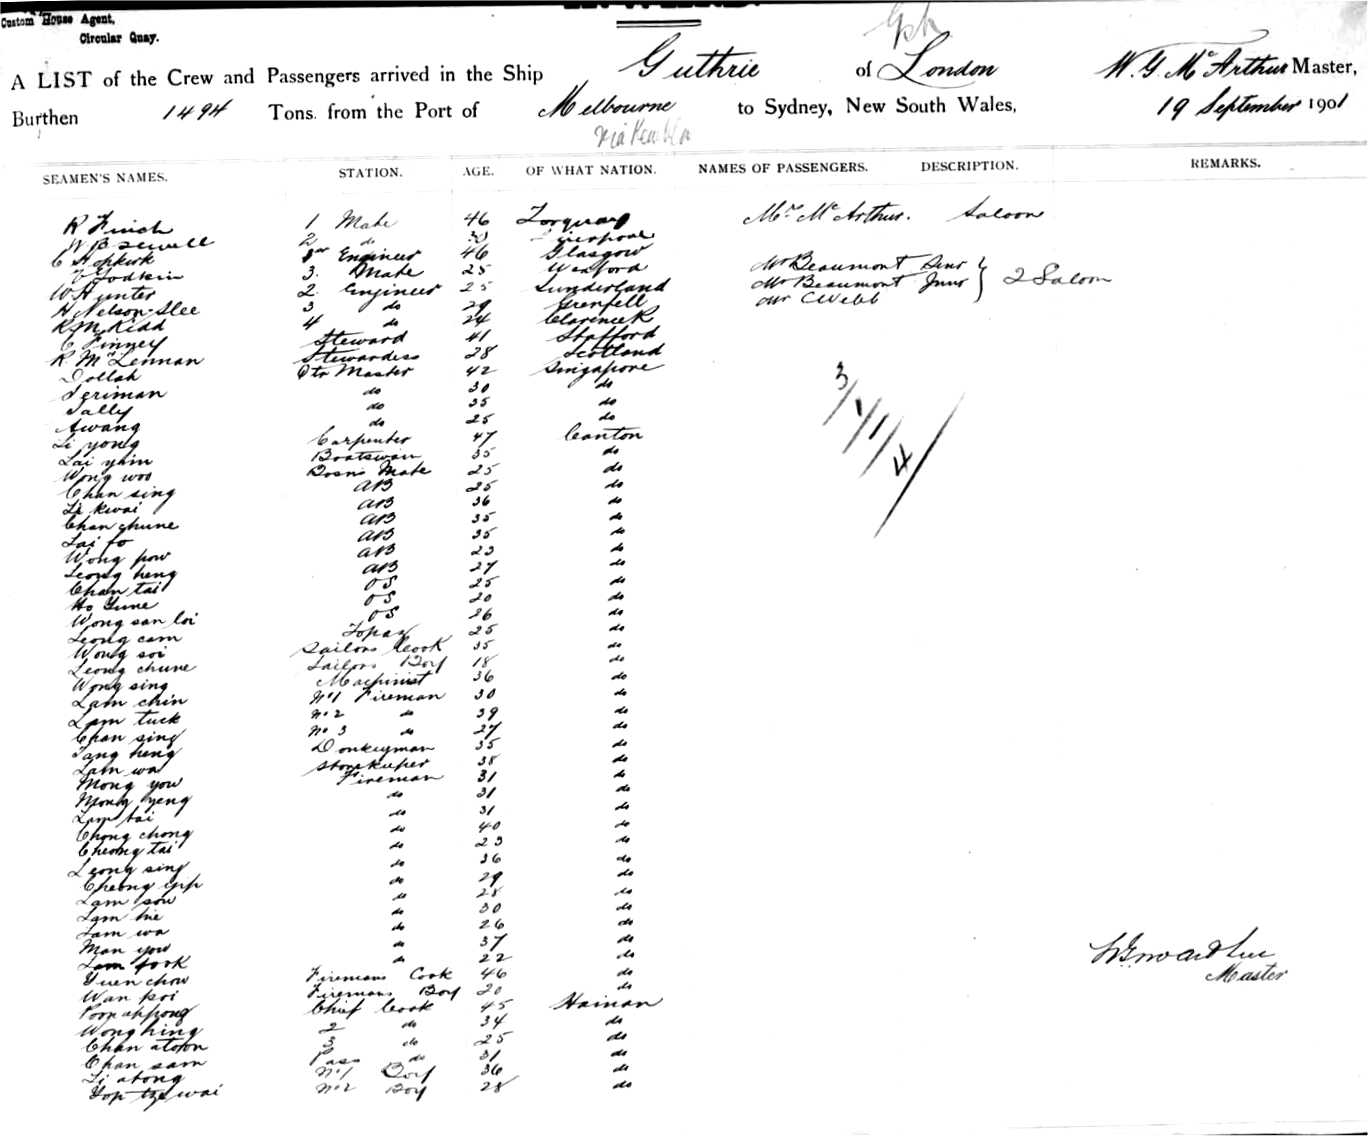 Custom House Agent,
Circular Quay.
A LIST of the Crew and Passengers arrived in the Ship Guthrie of London W. G. McArthur Master,
Burthen 1494 Tons from the Port of Melbourne to Sydney, New South Wales, 19 September 1901
via Kembla
SEAMEN'S NAMES. STATION. AGE. OF WHAT NATION. NAMES OF PASSENGERS. DESCRIPTION. REMARKS.
R Finch 1 Mate 46 Torquay Mrs McArthur. Saloon
W B Sewell 2 do 30 Liverpool
C Hopkirk 1st Engineer 46 Glasgow Mr Beaumont Senr
T Godkin 3. Mate 25 Wexford Mr Beaumont Junr } 2 Saloon
W Hunter 2 Engineer 25 Sunderland Mr C Webb
H Nelson-Slee 3 do 29 Grenfell
R McKidd 4 do 24 Clarence R
C Finney Steward 41 Stafford
R McLennan Stewardess 28 Scotland
Dollah Qtr Master 42 Singapore
Seriman do 30 do
Sally do 35 do
Awang do 25 do
Li yong Carpenter 47 Canton
Lai yhim Boatswain 35 do
Wong woo Bosns Mate 25 do
Chan sing AB 25 do
Li kwai AB 36 do
Chan chune AB 35 do
Lai fo AB 35 do
Wong pow AB 23 do
Leong heng AB 27 do
Chan tai OS 25 do
Ho Yune OS 20 do
Wong san loi OS 26 do
Leong cam Topaz 25 do
Wong soi Sailors Cook 35 do
Leong chune Sailors Boy 18 do
Wong sing Machinist 36 do
Lam chin No 1 Fireman 30 do
Lam tuck No 2 do 39 do
Chan sing No 3 do 27 do
Tang heng Donkeyman 35 do
Lam wa Storekeeper 38 do
Mong you Fireman 31 do
Mong yeng do 31 do
Lam tai do 31 do
Chong chong do 40 do
Cheong tai do 23 do
Leong sing do 36 do
Cheong yip do 29 do
Lam sow do 28 do
Lam hie do 30 do
Lam wa do 26 do
Man you do 37 do
Lam fook do 22 do
Yuen chow Firemans Cook 46 do
Wan poi Firemans Boy 20 do
Poon ahpong Chief Cook 45 Hainan
Wong hing 2 do 34 do
Chan atoon 3 do 25 do
Chan sam Pass do 31 do
Li atong No 1 Boy 36 do
Yop tze wai No 2 Boy 28 do
3/1/1/4/
W G McArthur
Master